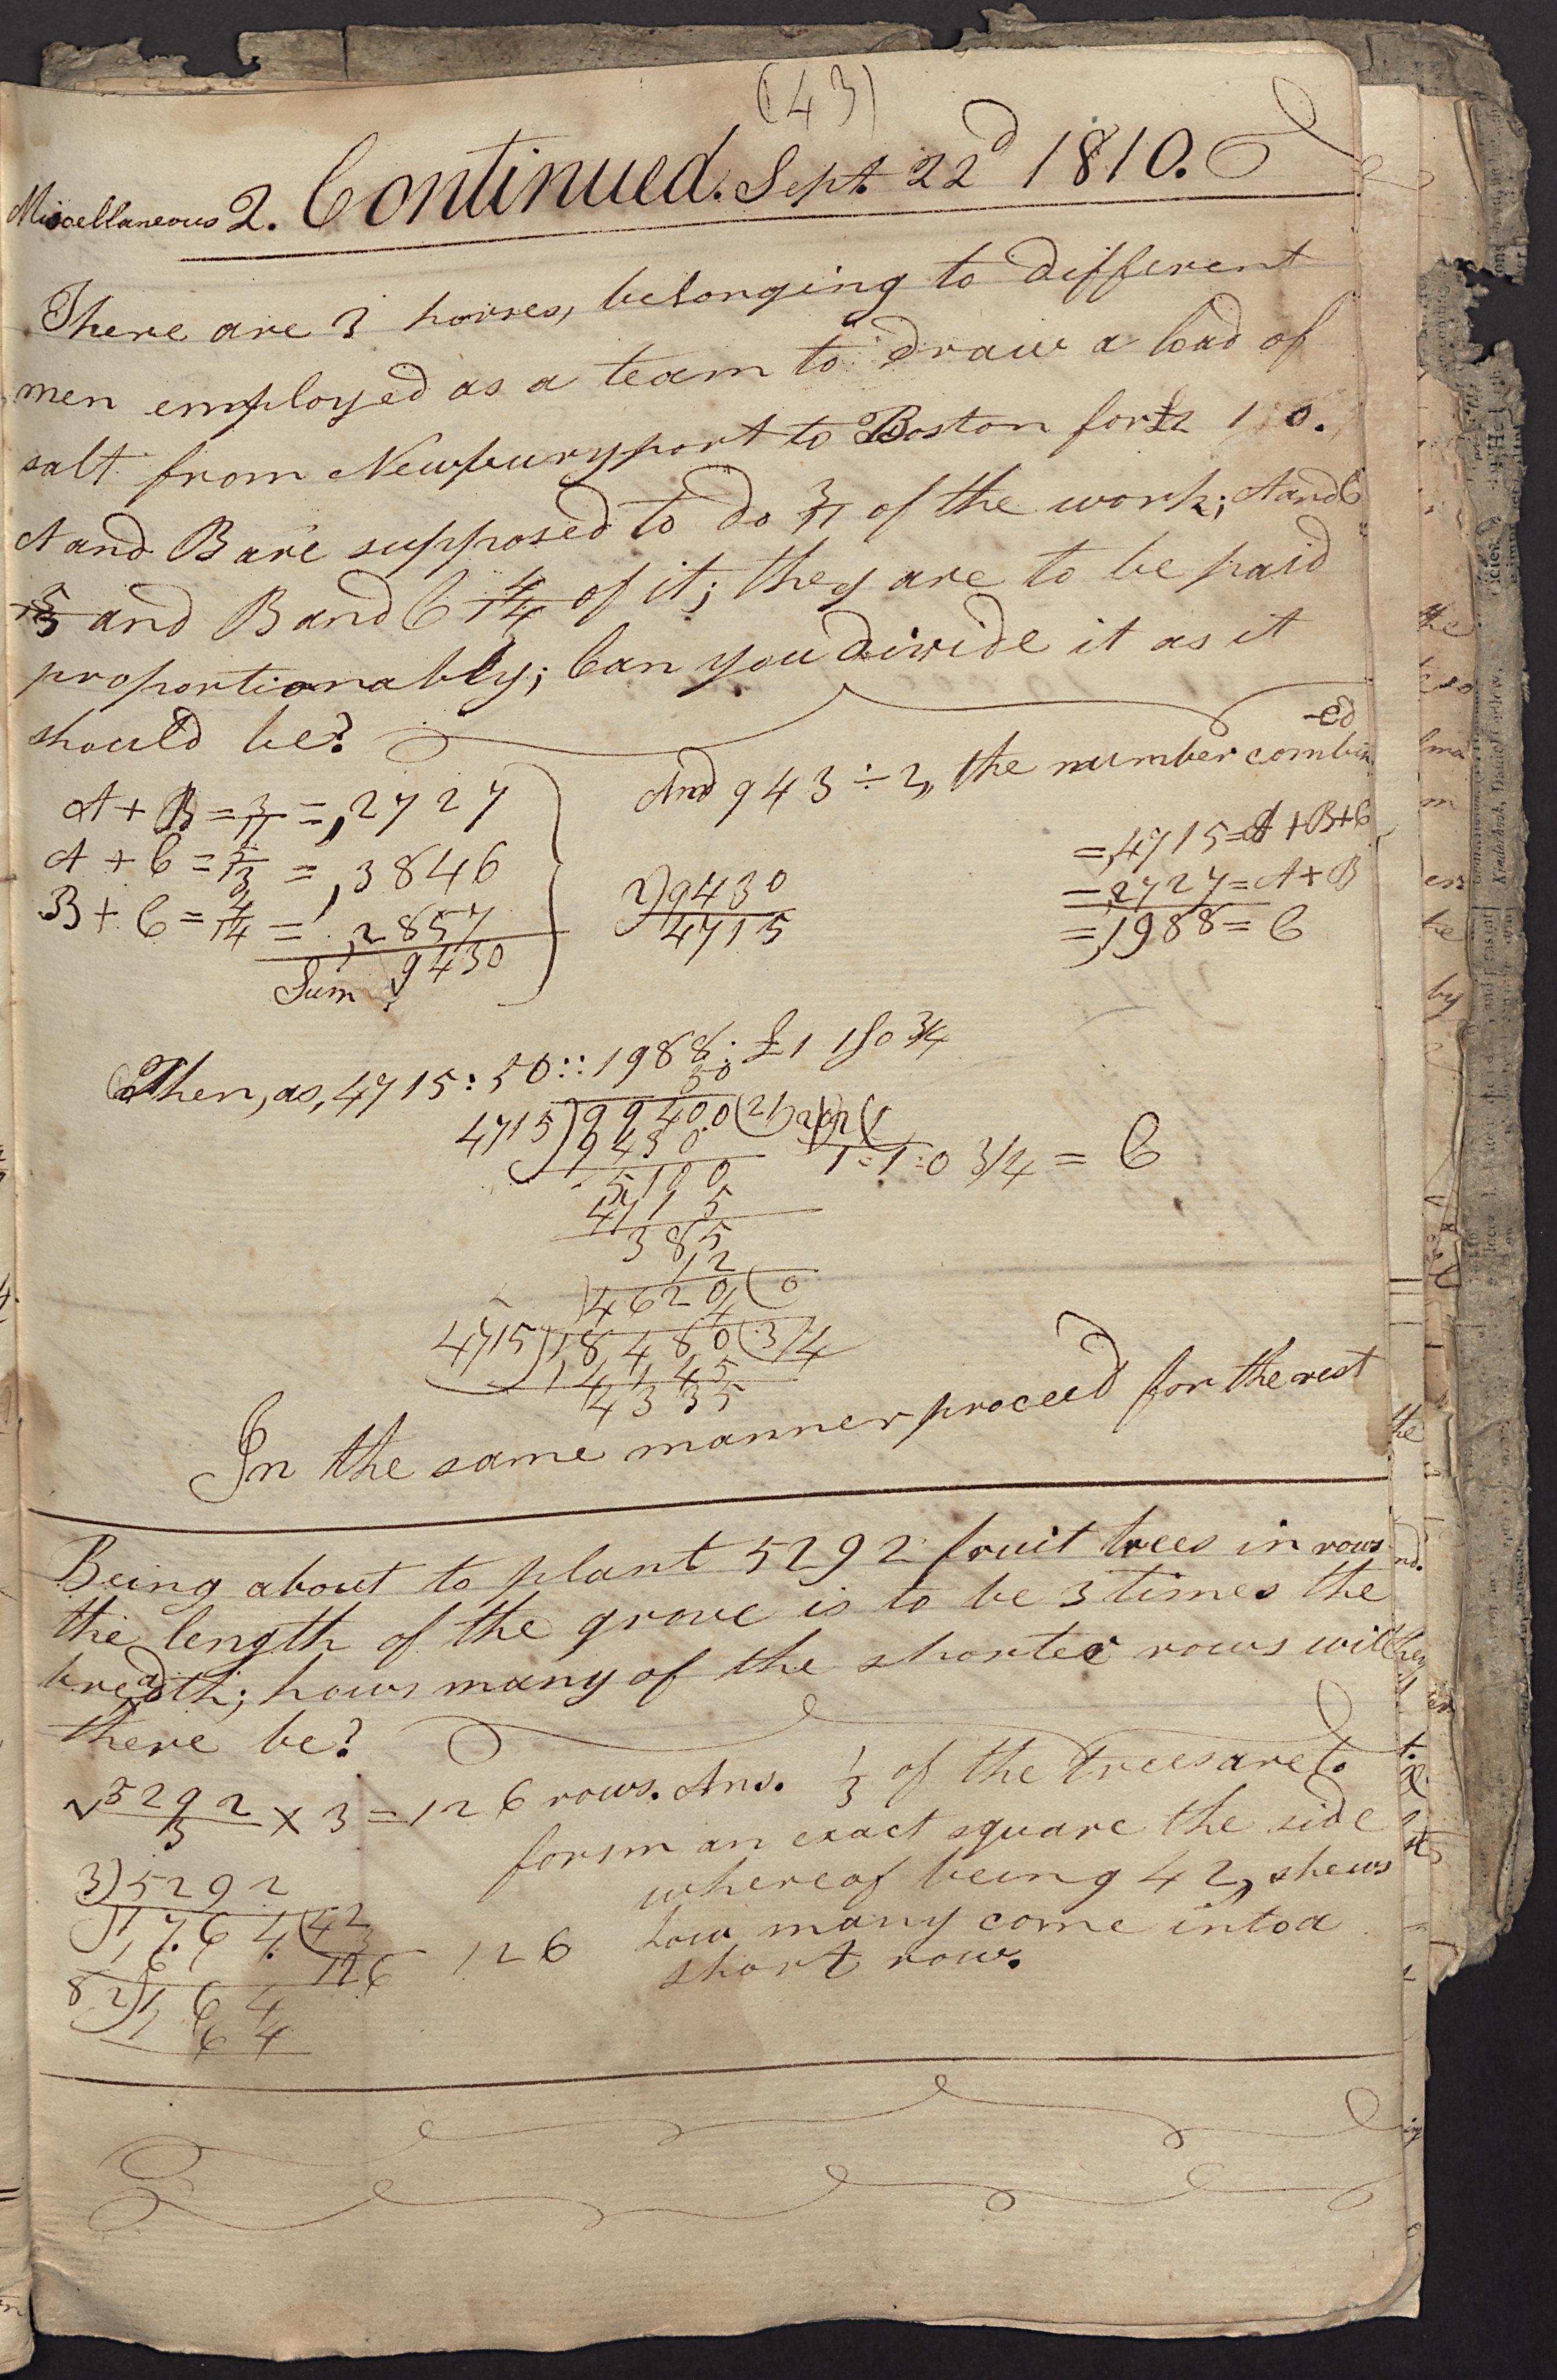 (43)
Miscellaneous 2. Continued. Sept. 22d 1810.
There are 3 horses, belonging to different
men employed as a team to draw a load of
salt from Newburyport to Boston for £2 10.
A and B are supposed to do 3/11 of the work; A and C
5/13 and B and C 4/14 of it; they are to be paid
proportionably; Can you divide it as it
should be?
A + B = 3/11 = ,2727
A + C = 5/13 = ,3846
B + C = 4/14 = ,2857
Sum ,9430
And 943 ÷ 2,, the number combin
-ed
2)9430
4715
=,4715=A+B+C
=,2727=A+B
=,1988=C
Then, as, 4715 : 50 :: 1988 : £1 1s 0 3/4
50
4715)99400(21 2|0)2|1
9430
1 : 1 : 0 3/4 = C
5100
4715
385
12
)4620(0
4
4715)18480(3/4
14145
4335
In the same manner proceed for the rest
Being about to plant 5292 fruit trees in rows
the length of the grove is to be 3 times the
breadth; hows many of the shorter rows will
there be?
√5292/3 × 3 = 126 rows. Ans. 1/3 of the trees are to
form an exact square the side
whereof being 42, shews
how many come into a
short row.
3)5292
)1764(42
3
16
126 126
82)164
164